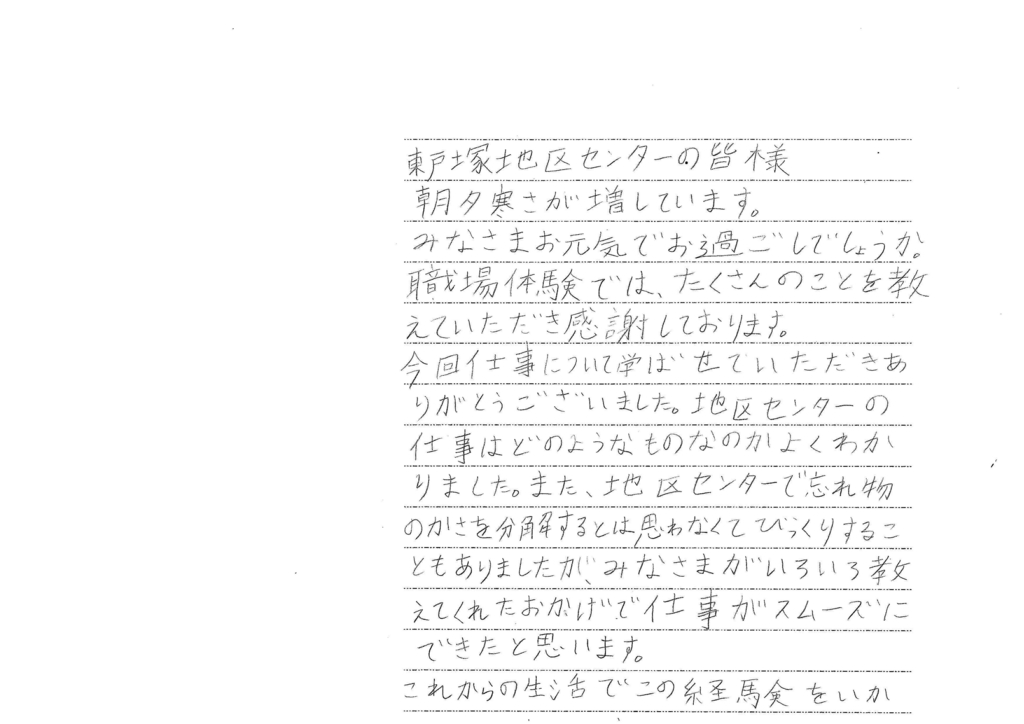 東戸塚地区センターの皆様
朝夕寒さが増しています。
みなさまお元気でお過ごしでしょうか。
職場体験では、たくさんのことを教
えていただき感謝しております。
今回仕事について学ばせていただきあ
りがとうございました。地区センターの
仕事はどのようなものなのかよくわか
りました。また、地区センターで忘れ物
のかさを分解するとは思わなくてびっくりするこ
ともありましたが、みなさまがいろいろ教
えてくれたおかげで仕事がスムーズに
できたと思います。
これからの生活でこの経験をいか